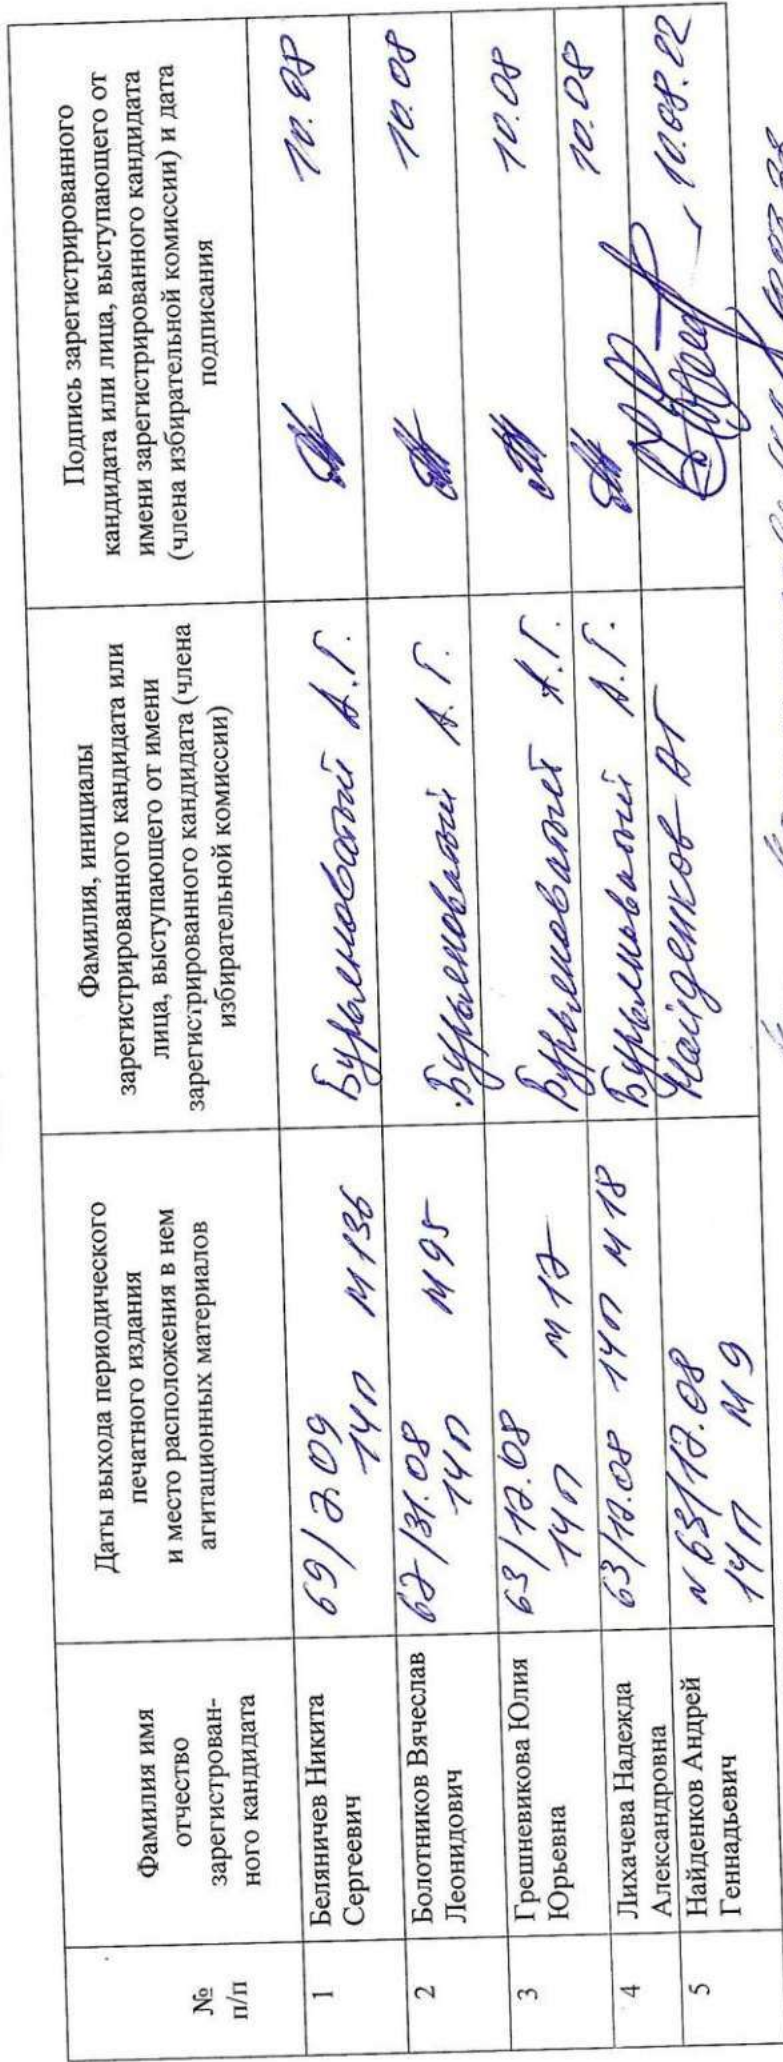 №
п/п
Фамилия имя
отчество
зарегистрирован-
ного кандидата
Даты выхода периодического
печатного издания
и место расположения в нем
агитационных материалов
Фамилия, инициалы
зарегистрированного кандидата или
лица, выступающего от имени
зарегистрированного кандидата (члена
избирательной комиссии)
Подпись зарегистрированного
кандидата или лица, выступающего от
имени зарегистрированного кандидата
(члена избирательной комиссии) и дата
подписания
1
Беляничев Никита
Сергеевич
69/2.09
14п М136
Бурьяноватый А.Г.
10.08
2
Болотников Вячеслав
Леонидович
62/31.08
14п М95
Бурьяноватый А.Г.
10.08
3
Грешневикова Юлия
Юрьевна
63/17.08
14п М17
Бурьяноватый А.Г.
10.08
4
Лихачева Надежда
Александровна
63/17.08 14п М18
Бурьяноватый А.Г.
10.08
5
Найденков Андрей
Геннадьевич
№63/17.08
14п М9
Найденков АГ
10.08.22